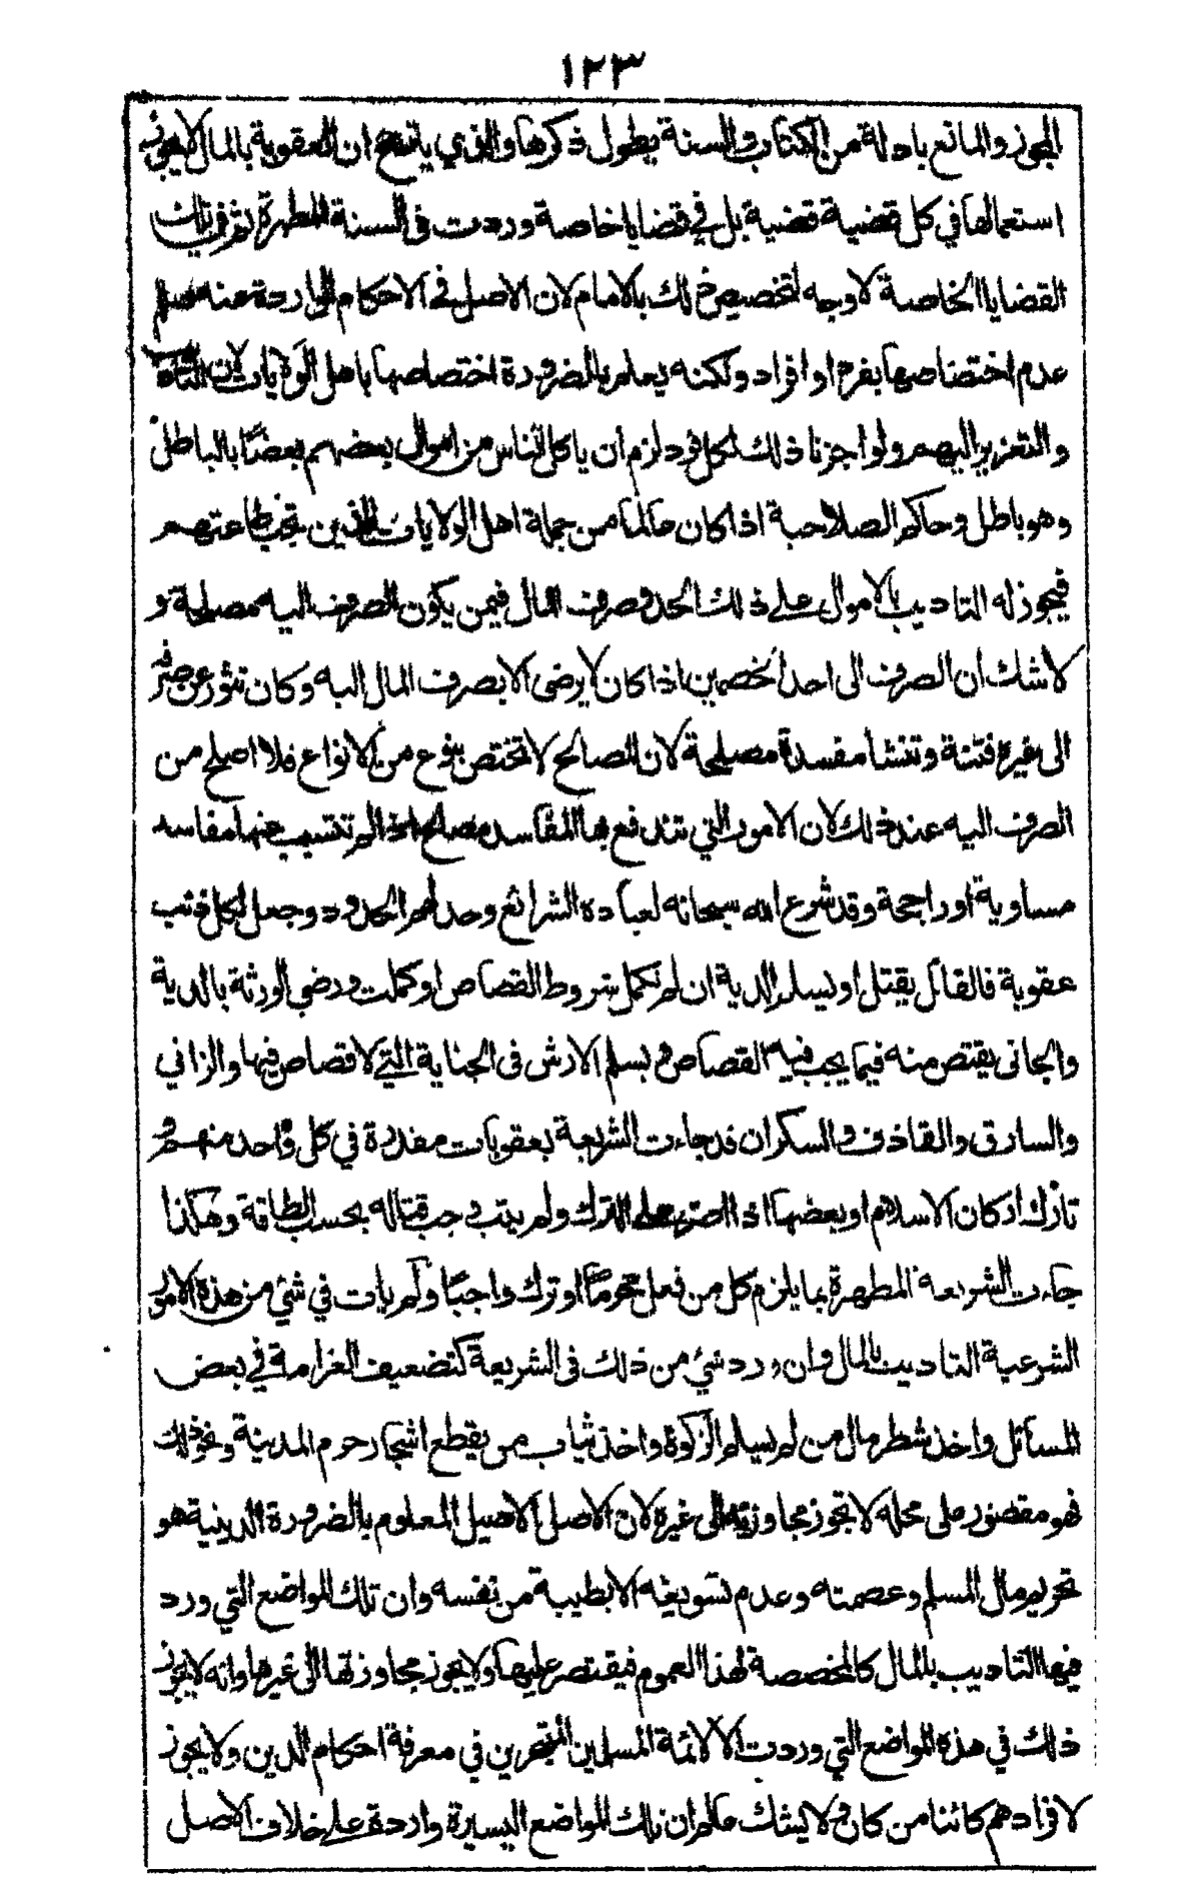 ١٢٣
المجوز والمانع بادلة من الكتاب والسنة يطول ذكرها والذي يتضح ان العقوبة بالمال لا يجوز
استعمالها في كل قضية قضية بل في قضايا خاصة وردت في السنة المطهرة ثم في تلك
القضايا الخاصة لا وجه لتخصيص ذلك بالامام لان الاصل في الاحكام الواردة عنه صلم
عدم اختصاصها بفرد او افراد ولكنه يعلم بالضرورة اختصاصها باهل الولايات لان
والتعزير اليهم ولو اجزنا ذلك لكل فرد لزم أن ياكل الناس من اموال بعضهم بعضًا بالباطل
وهو باطل وحاكم الصلاحية اذا كان عالما من جملة اهل الولايات الذين يجب طاعتهم
فيجوز له التاديب بالاموال على ذلك الحد وصرف المال فيمن يكون الصرف اليه مصلحة و
لا شك أن الصرف الى احد الخصمين اذا كان لا يرضى الا بصرف المال اليه وكان تثور عن صرفه
الى غيره فتنة وتنشأ مفسدة مصلحة لان المصالح لا تختص بنوع من الانواع فلا اصلح من
الصرف اليه عند ذلك لان الامور التي تندفع بها المفاسد مصالح اذا لم تتسبب عنها مفاسد
مساوية او راجحة وقد شرع الله سبحانه لعباده الشرائع وحد لهم الحدود وجعل لكل ذنب
عقوبة فالقاتل يقتل او يسلم الدية ان لم تكمل شروط القصاص او كملت ورضي الورثة بالدية
والجاني يقتص منه فيما يجب فيه القصاص ويسلم الارش في الجناية التي لا قصاص فيها والزاني
والسارق والقاذف والسكران قد جاءت الشريعة بعقوبات مقدرة في كل واحد منهم و
تارك اركان الاسلام او بعضها اذا اصر على الترك ولم يتب وجب قتاله بحسب الطاقة وهكذا
جاءت الشريعة المطهرة بما يلزم كل من فعل محرمًا او ترك واجبًا ولم يات في شئ من هذه الامور
الشرعية التاديب بالمال وان ورد شئ من ذلك في الشريعة كتضعيف الغرامة في بعض
المسائل واخذ شطر مال من لم يسلم الزكوة واخذ ثياب من يقطع اشجار حرم المدينة ونحو ذلك
فهو مقصور على محله لا تجوز مجاوزته الى غيره لان الاصل الاصيل المعلوم بالضرورة الدينية هو
تحريم مال المسلم وعصمته وعدم تسويغه الا بطيبة من نفسه وان تلك المواضع التي ورد
فيها التاديب بالمال كالمخصصة لهذا العموم فيقتصر عليها ولا يجوز مجاوزتها الى غيرها وانه لا يجوز
ذلك في هذه المواضع التي وردت الا لائمة المسلمين المتبحرين في معرفة احكام الدين ولا يجوز
لافرادهم كائنا من كان و لا يشك عالم ان تلك المواضع اليسيرة واردة على خلاف الاصل